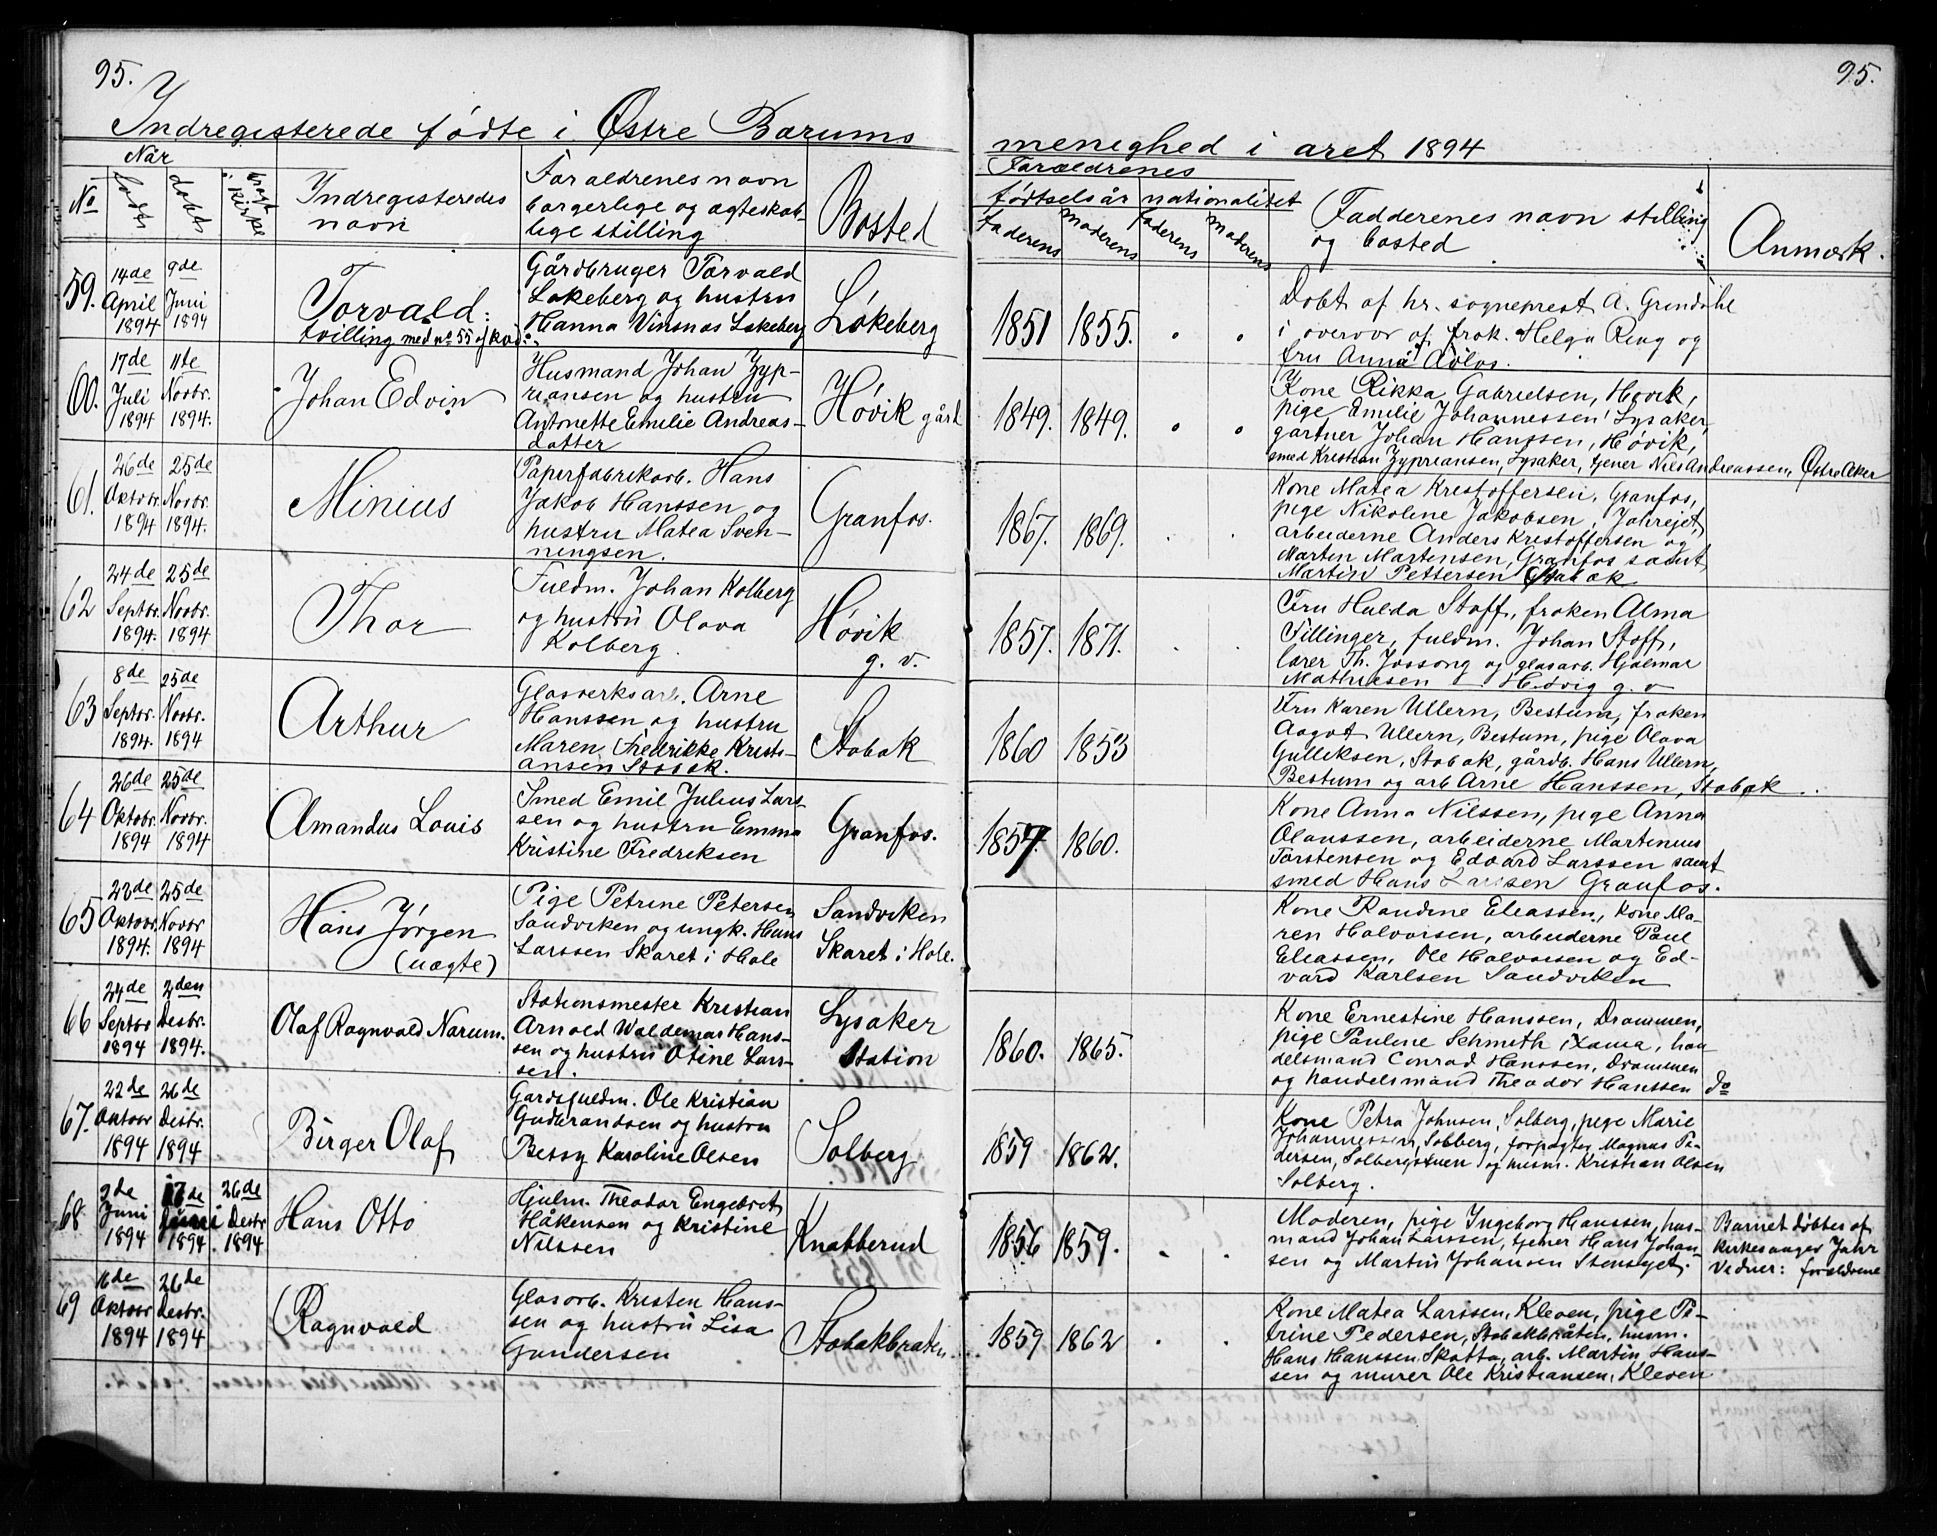 95.
95.
Indregisterede fødte i Østre Bærums
menighed i året 1894
Når
No
fødte
døbte
kirke
Indregisteredes
navn
Forældrenes navn
borgerlige og ægteskab-
lige stilling
Bosted
Forældrenes
fødtselsår
nationalitet
faderens
moderens
faderens
moderens
Fadderenes navn stilling
og bosted
Anmærk.
59.
14de
April
1894
9de
Juni
1894
Torvald:
tvilling med no 55 af kvd:
Gårdbruger Torvald
Løkeberg og hustru
Hanna Vinsnæs Løkeberg
Løkeberg
1851
1855.
Døbt af hr. sogneprest A. Grøndahl
i overvær af frøk. Helga Ring og
fru Anna
60.
17de
Juli
1894
11te
Novbr.
1894.
Johan Edvin
Husmand Johan Zyp-
riansen og hustru
Antonette Emilie Andreas-
datter
Høvik gård
1849.
1849.
Kone Rikka Gabrielsen, Høvik,
pige Emilie Johannessen, Lysaker,
gartner Johan Hanssen, Høvik,
smed Kristian Zypriansen, Lysaker, tjener Nils Andreassen, Østre Aker
61.
26de
Oktobr.
1894
25de
Novbr.
1894.
Minius
Papirfabrikarb. Hans
Jakob Hanssen og
hustru Matea Sven-
ningsen.
Granfos.
1867.
1869.
Kone Matea Kristoffersen, Granfos,
pige Nikoline Jakobsen,
arbeiderne Anders Kristoffersen og
Martin Martinsen, Granfos samt
Martin Pettersen Stabæk
62
24de
Septbr.
1894.
25de
Novbr.
1894
Thor
Fuldm. Johan Kolberg
og hustru Olava
Kolberg.
Høvik
g. v.
1857.
1871.
Fru Hulda Stoff, frøken Alma
Fillinger, fuldm. Johan Stoff,
lærer Th. Jossang og glasarb. Hjalmar
Mathisen Høvig g. v
63
8de
Septbr.
1894.
25de
Novbr.
1894
Arthur
Glasverksarb. Arne
Hanssen og hustru
Maren Fredrikke Kristi-
ansen Stabæk.
Stabæk
1860
1853
Fru Karen Ullern, Bestum, frøken
Aagot Ullern, Bestum, pige Olava
Gulliksen, Stabæk, gårdb. Hans Ullern,
Bestum og arb Arne Hanssen, Stabæk
64
26de
Oktobr.
1894
25de
Novbr.
1894
Amandus Louis
Smed Emil Julius Lars-
sen og hustru Emma
Kristine Fredriksen
Granfos.
1857.
1860.
Kone Anna Nilssen, pige Anna
Olaussen, arbeiderne Martinius
Torstensen og Edvard Larssen samt
smed Hans Larssen Granfos.
65
23de
Oktobr.
1894.
25de
Novbr
1894
Hans Jørgen
(uægte)
Pige Petrine Petersen
Sandviken og ungk. Hans
Larssen Skaret i Hole
Sandviken
Skaret i Hole.
Kone Randine Eliassen, kone Ma-
ren Halvorsen, arbeiderne Paul
Eliassen, Ole Halvorsen og Ed-
vard Karlsen Sandviken
66
24de
Septbr
1894
2den
Desbr.
1894.
Olaf Ragnvald Narum.
Stationsmester Kristian
Arnold Waldemar Hans-
sen og hustru Otine Lars-
sen.
Lysaker
Station
1860.
1865.
Kone Ernestine Hanssen, Drammen,
pige Pauline Schmeth Kra, han-
delsmand Conrad Hanssen, Drammen
og handelsmand Theodor Hanssen do
67.
22de
Oktobr
1894
26de
Desbr.
1894
Birger Olaf
Gårdsfuldm. Ole Kristian
Gudbrandsen og hustru
Betsy Karoline Olsen
Solberg.
1859
1862.
Kone Petra Johnsen, Solberg, pige Marie
Johannessen, Solberg, forpagter Magnus Pe-
dersen, Solbergstuen og husm. Kristian Olsen
Solberg.
68
9de
Juni
1894
17de
Juni
1894
26de
Desbr
1894
Hans Otto
Hjulm. Theodor Engebret
Håkensen og Kristine
Nilssen
Knabberud
1856
1859.
Moderen, pige Ingeborg Hanssen, hus-
mand Johan Larssen, tjener Hans Johan-
sen og Martin Johansen Stensgjet.
Barnet døbtes af
kirkesanger Jahr
Vidner: forældrene
69
16de
Oktobr
1894
26de
Desbr.
1894
Ragnvald
Glasarb. Kristen Hans-
sen og hustru Lisa
Gundersen
Stabækbråten
1859
1862
Kone Matea Larssen, Kleven, pige Pe-
trine Pedersen, Stabækbråten, husm.
Hans Hanssen Skøtta, arb. Martin Hans-
sen og murer Ole Kristiansen, Kleven